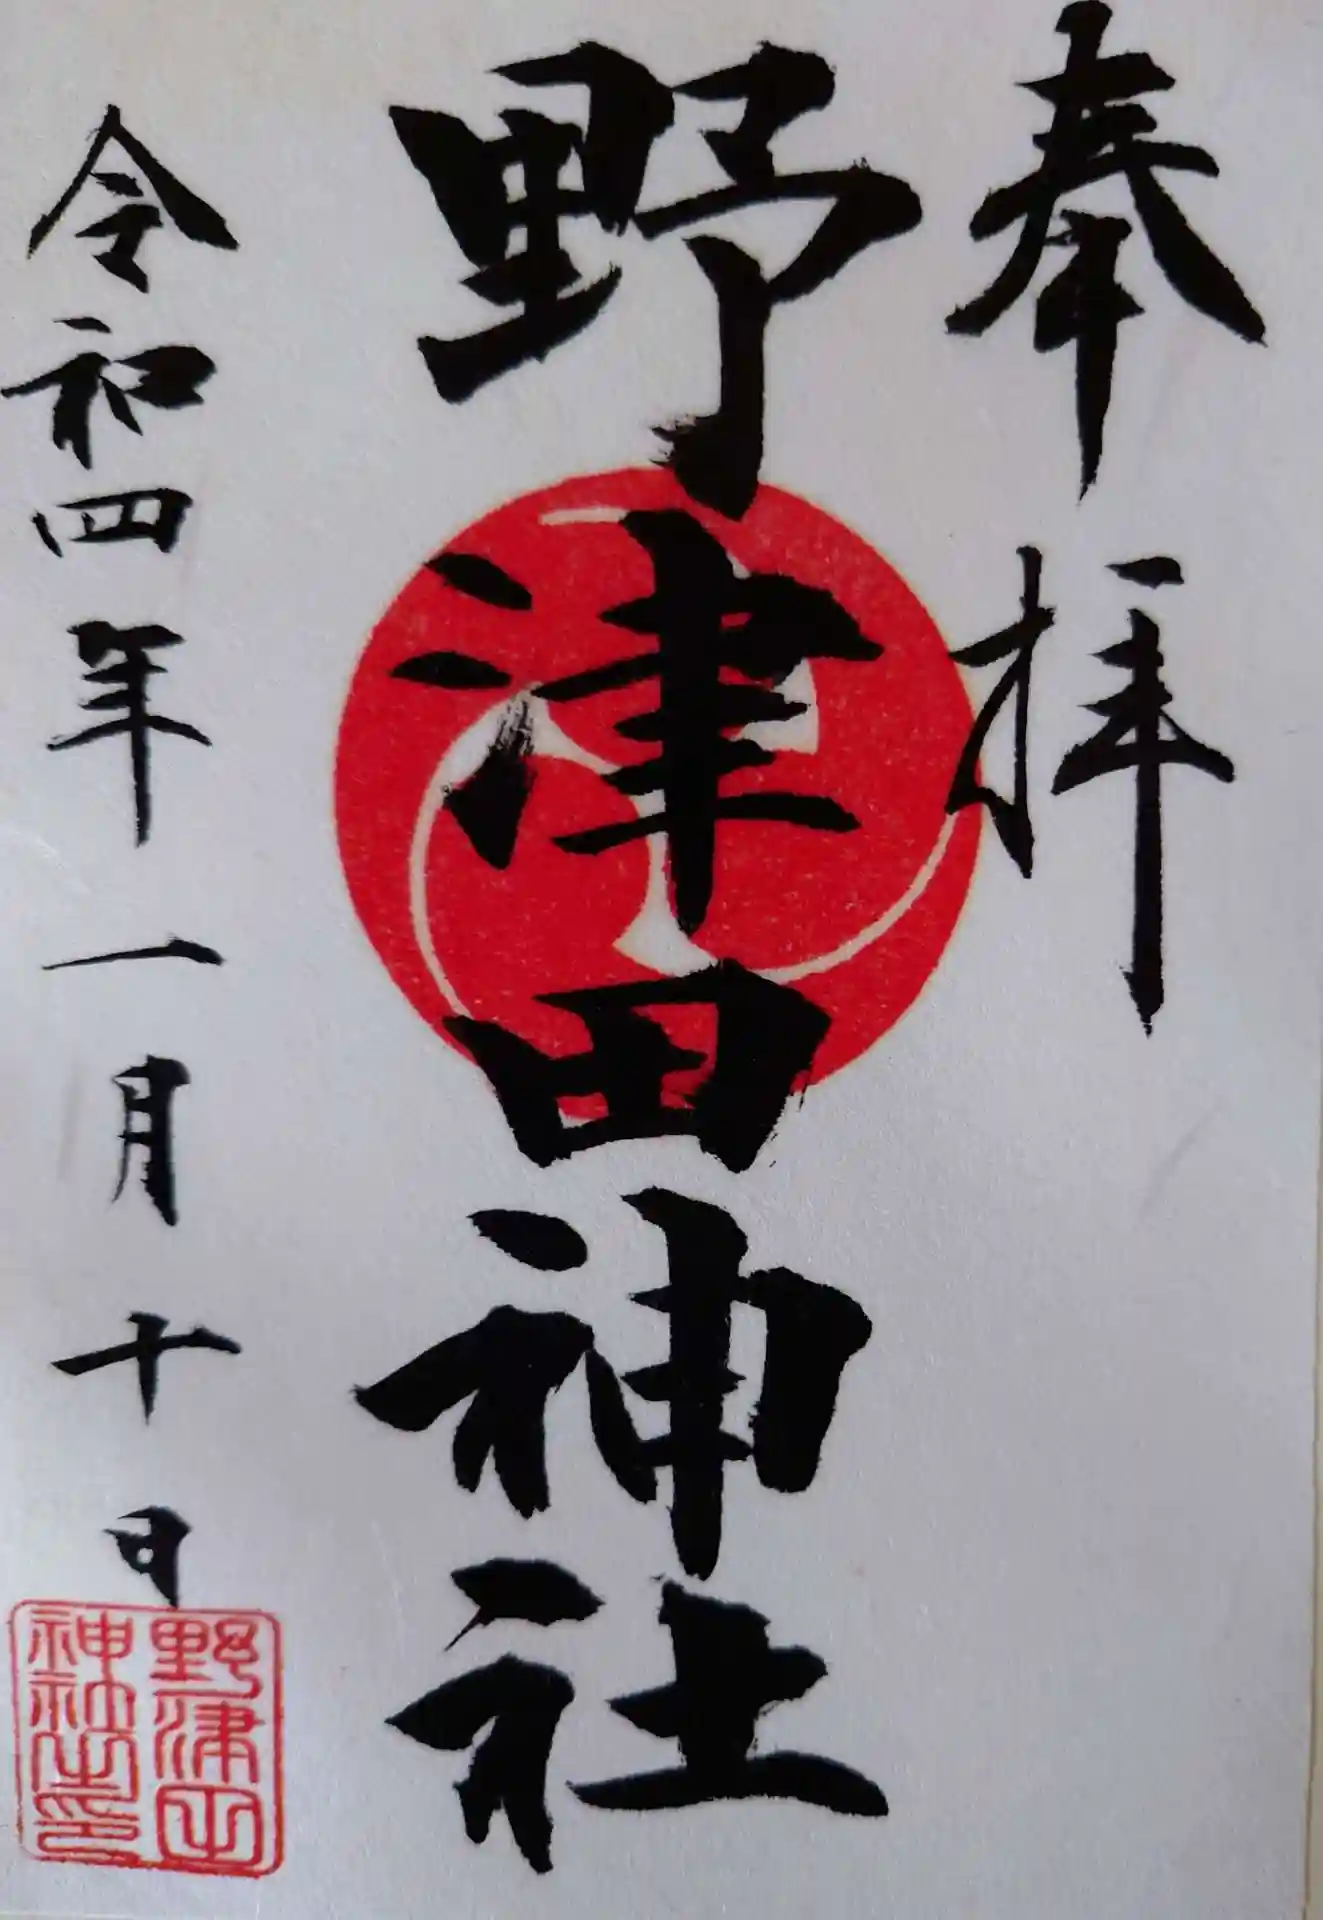 奉拝
野津田神社
令和四年一月十日
野津田
神社之印